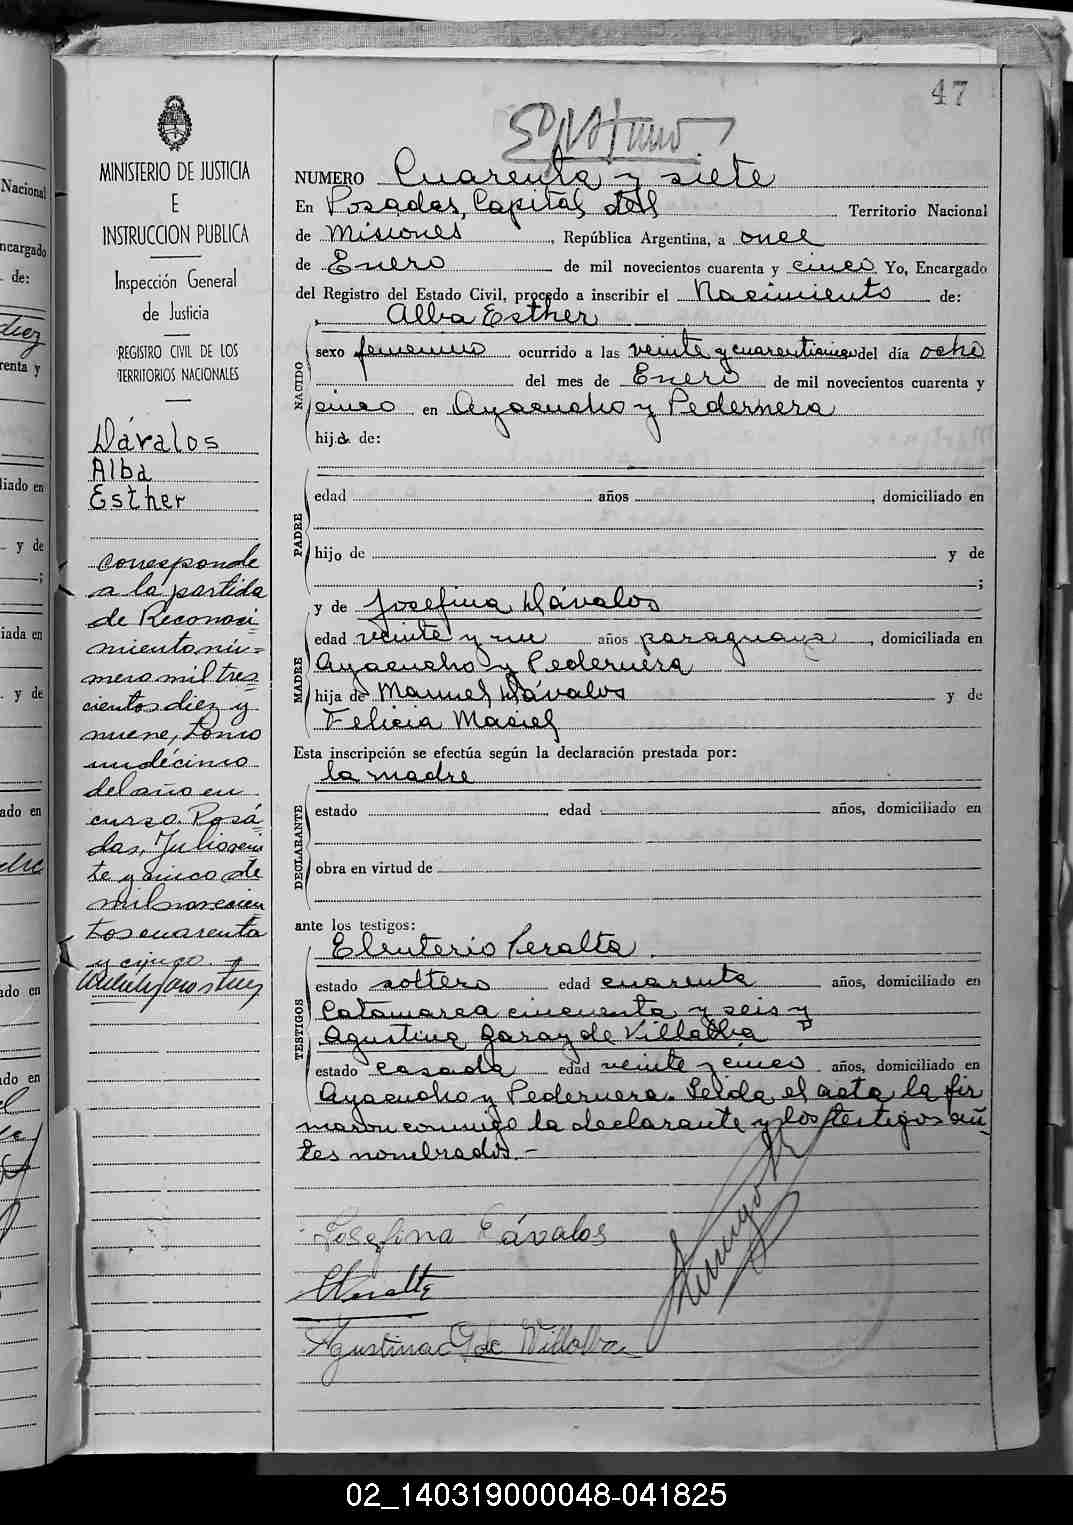 47
NUMERO Cuarenta y siete
En Posadas, Capital del Territorio Nacional
de Misiones, República Argentina, a once
de Enero de mil novecientos cuarenta y cinco Yo, Encargado
del Registro del Estado Civil, procedo a inscribir el Nacimiento de:
Alba Esther
NACIDO
sexo femenino ocurrido a las veinte y cuarenticinco del día ocho
del mes de Enero de mil novecientos cuarenta y
cinco en Ayacucho y Pedernera
hija de:
PADRE
edad años, domiciliado en
hijo de y de
;
MADRE
y de Josefina Dávalos
edad veinte y un años paraguaya, domiciliada en
Ayacucho y Pedernera
hija de Manuel Dávalos y de
Felicia Maciel
Esta inscripción se efectúa según la declaración prestada por:
la madre
DECLARANTE
estado edad años, domiciliado en
obra en virtud de
ante los testigos:
TESTIGOS
Eleuterio Peralta
estado soltero edad cuarenta años, domiciliado en
Catamarca cincuenta y seis y
Agustina Garay de Villalba
estado casada edad veinte y cinco años, domiciliado en
Ayacucho y Pedernera. Leida el acta la fir
maron conmigo la declarante y los testigos an-
tes nombrados.-
Josefina Dávalos
Agustina G de Villalba
MINISTERIO DE JUSTICIA
E
INSTRUCCION PUBLICA
Inspección General
de Justicia
REGISTRO CIVIL DE LOS
TERRITORIOS NACIONALES
Dávalos
Alba
Esther
corresponde
a la partida
de Reconoci
miento nú=
mero mil tres
cientos diez y
nueve, tomo
undécimo
del año en
curso. Posa
das, Julio vein
te y cinco de
mil novecien
tos cuarenta
y cinco.
Nacional
ncargado
de:
diez
renta y
liado en
y de
;
iada en
y de
ado en
ado en
do en
02_140319000048-041825